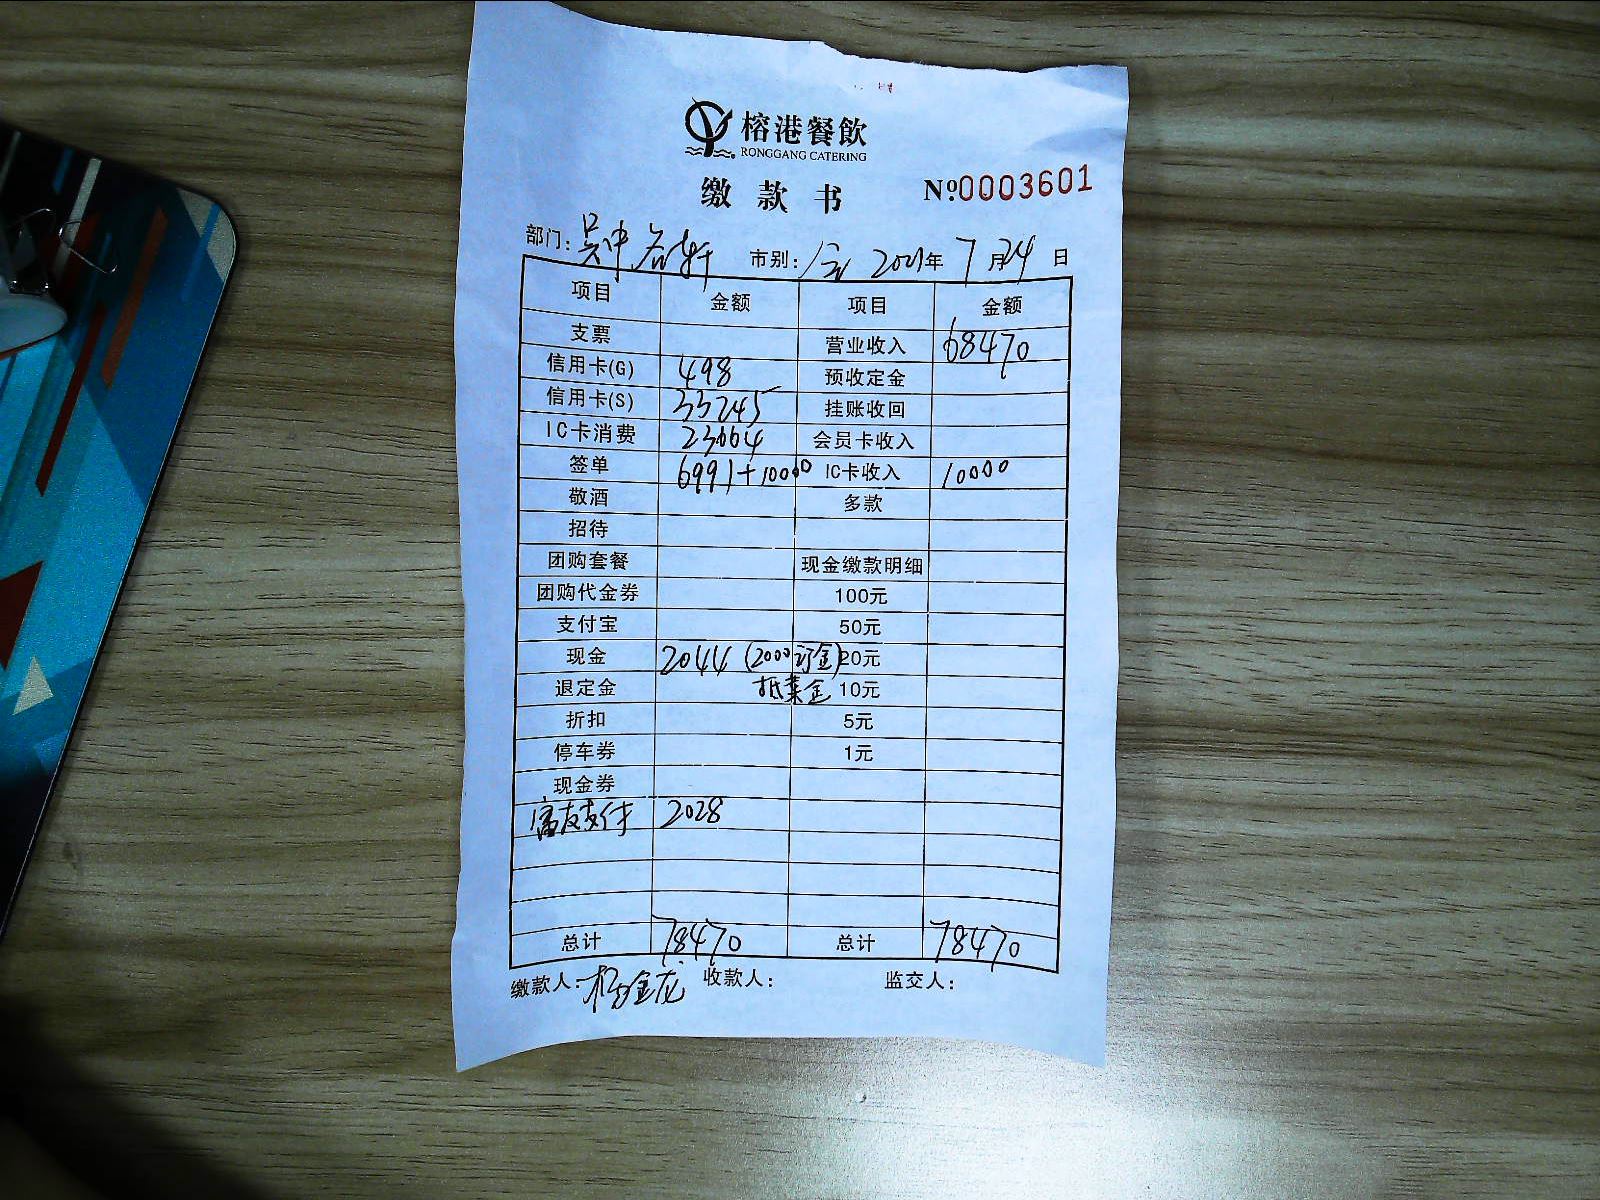 榕港餐飲
RONGGANG CATERING
缴款书 №0003601
部门: 吴中名轩 市别: 全 2021年 7月24日
项目 金额 项目 金额
支票 营业收入 68470
信用卡(G) 498 预收定金
信用卡(S) 33245 挂账收回
IC卡消费 23664 会员卡收入
签单 6991+10000 IC卡收入 10000
敬酒 多款
招待
团购套餐 现金缴款明细
团购代金券 100元
支付宝 50元
现金 2044 (2000订金) 20元
退定金 抵菜金 10元
折扣 5元
停车券 1元
现金券
富友支付 2028
总计 78470 总计 78470
缴款人: 杨金龙 收款人: 监交人: